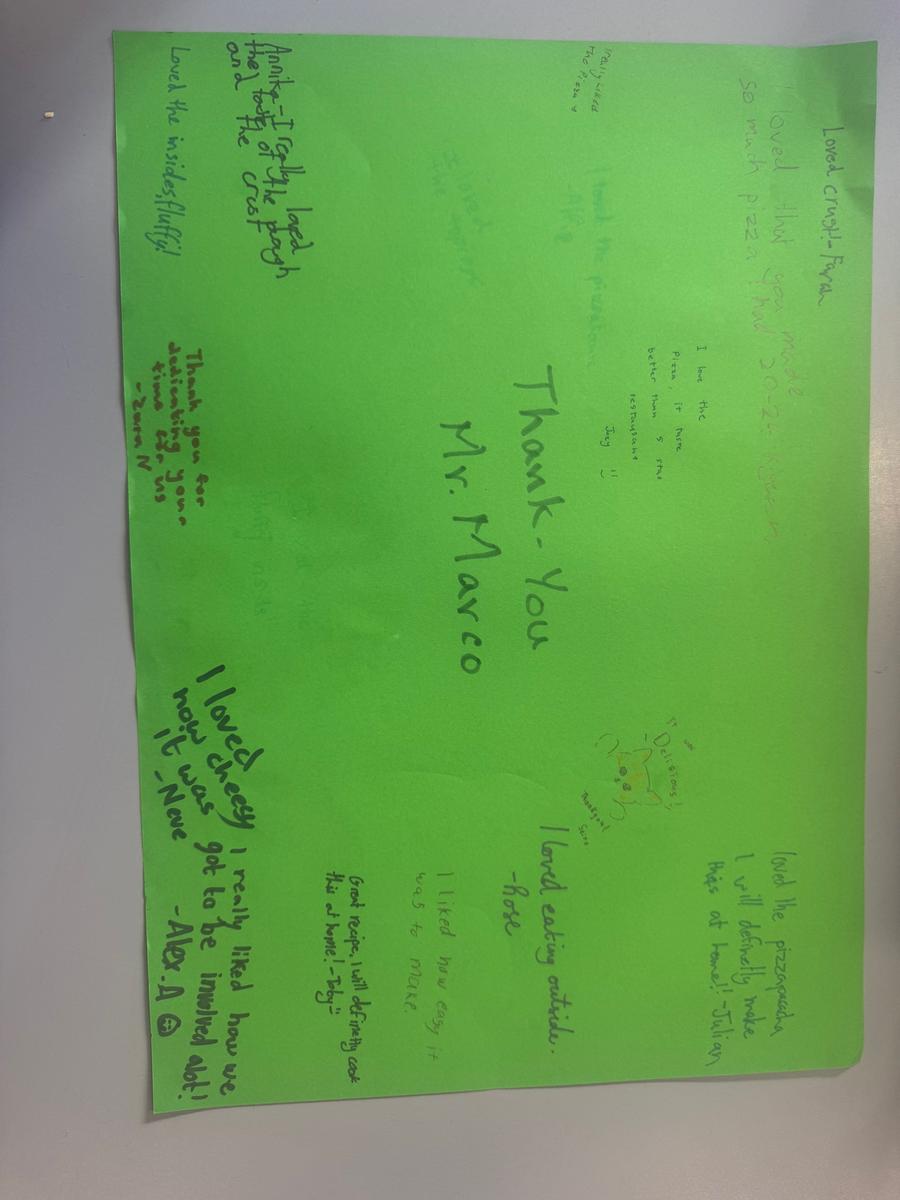 Loved crust!-Farah
I loved that you made
so much pizza I had
I really liked
the pizza
I loved the
-Alfie
I loved
the
Annika-I really loved
the taste of the dough
and the crust
Loved the insides, fluffy!
I love the
pizza, it taste
better than 5 star
restaurant
Thank-You
Mr. Marco
Thank you for
dedicating your
time for us
-Zara N
Delisious!
loved the pizza
I will definetly make
this at home!! -Julian
I loved eating outside.
-Rose
I liked how easy it
was to make.
Great recipe, I will definetly cook
this at home!-Toby
I loved
how cheesy
it was
-Neve
I really liked how we
got to be involved alot!
-Alex.A